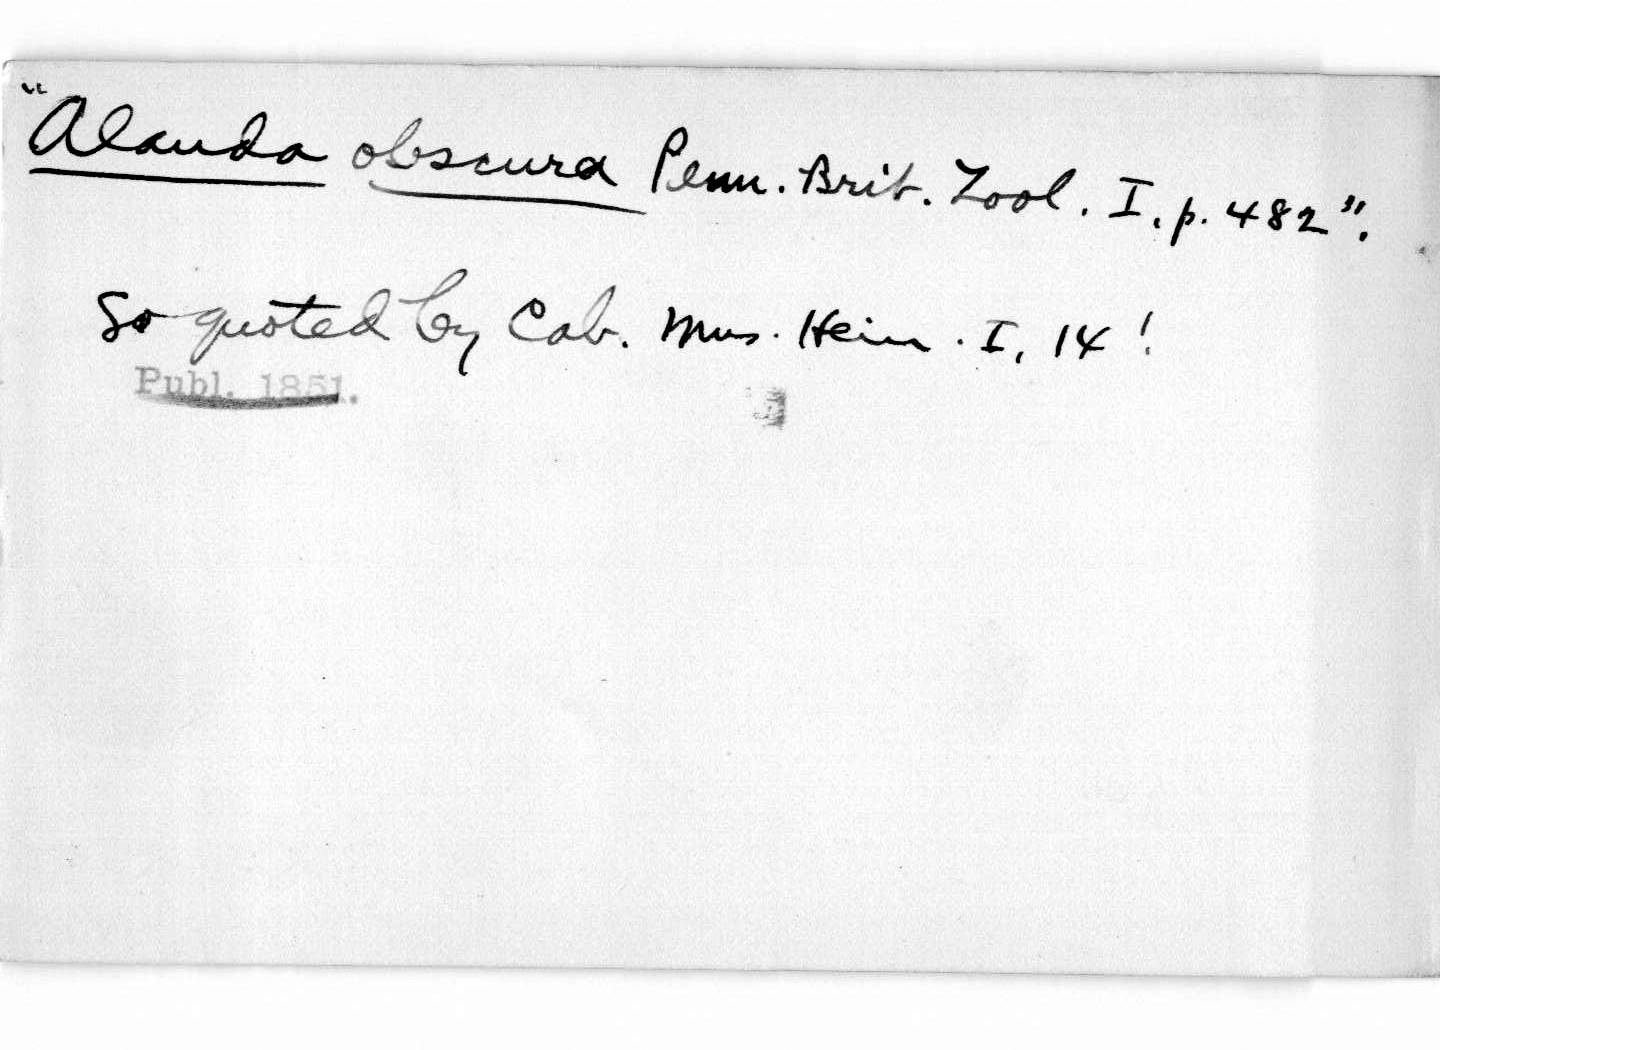 "Alauda obscura Penn. Brit. Zool. I. p. 482".
So quoted by Cab. Mus. Hein. I, 14!
Publ. 1851.